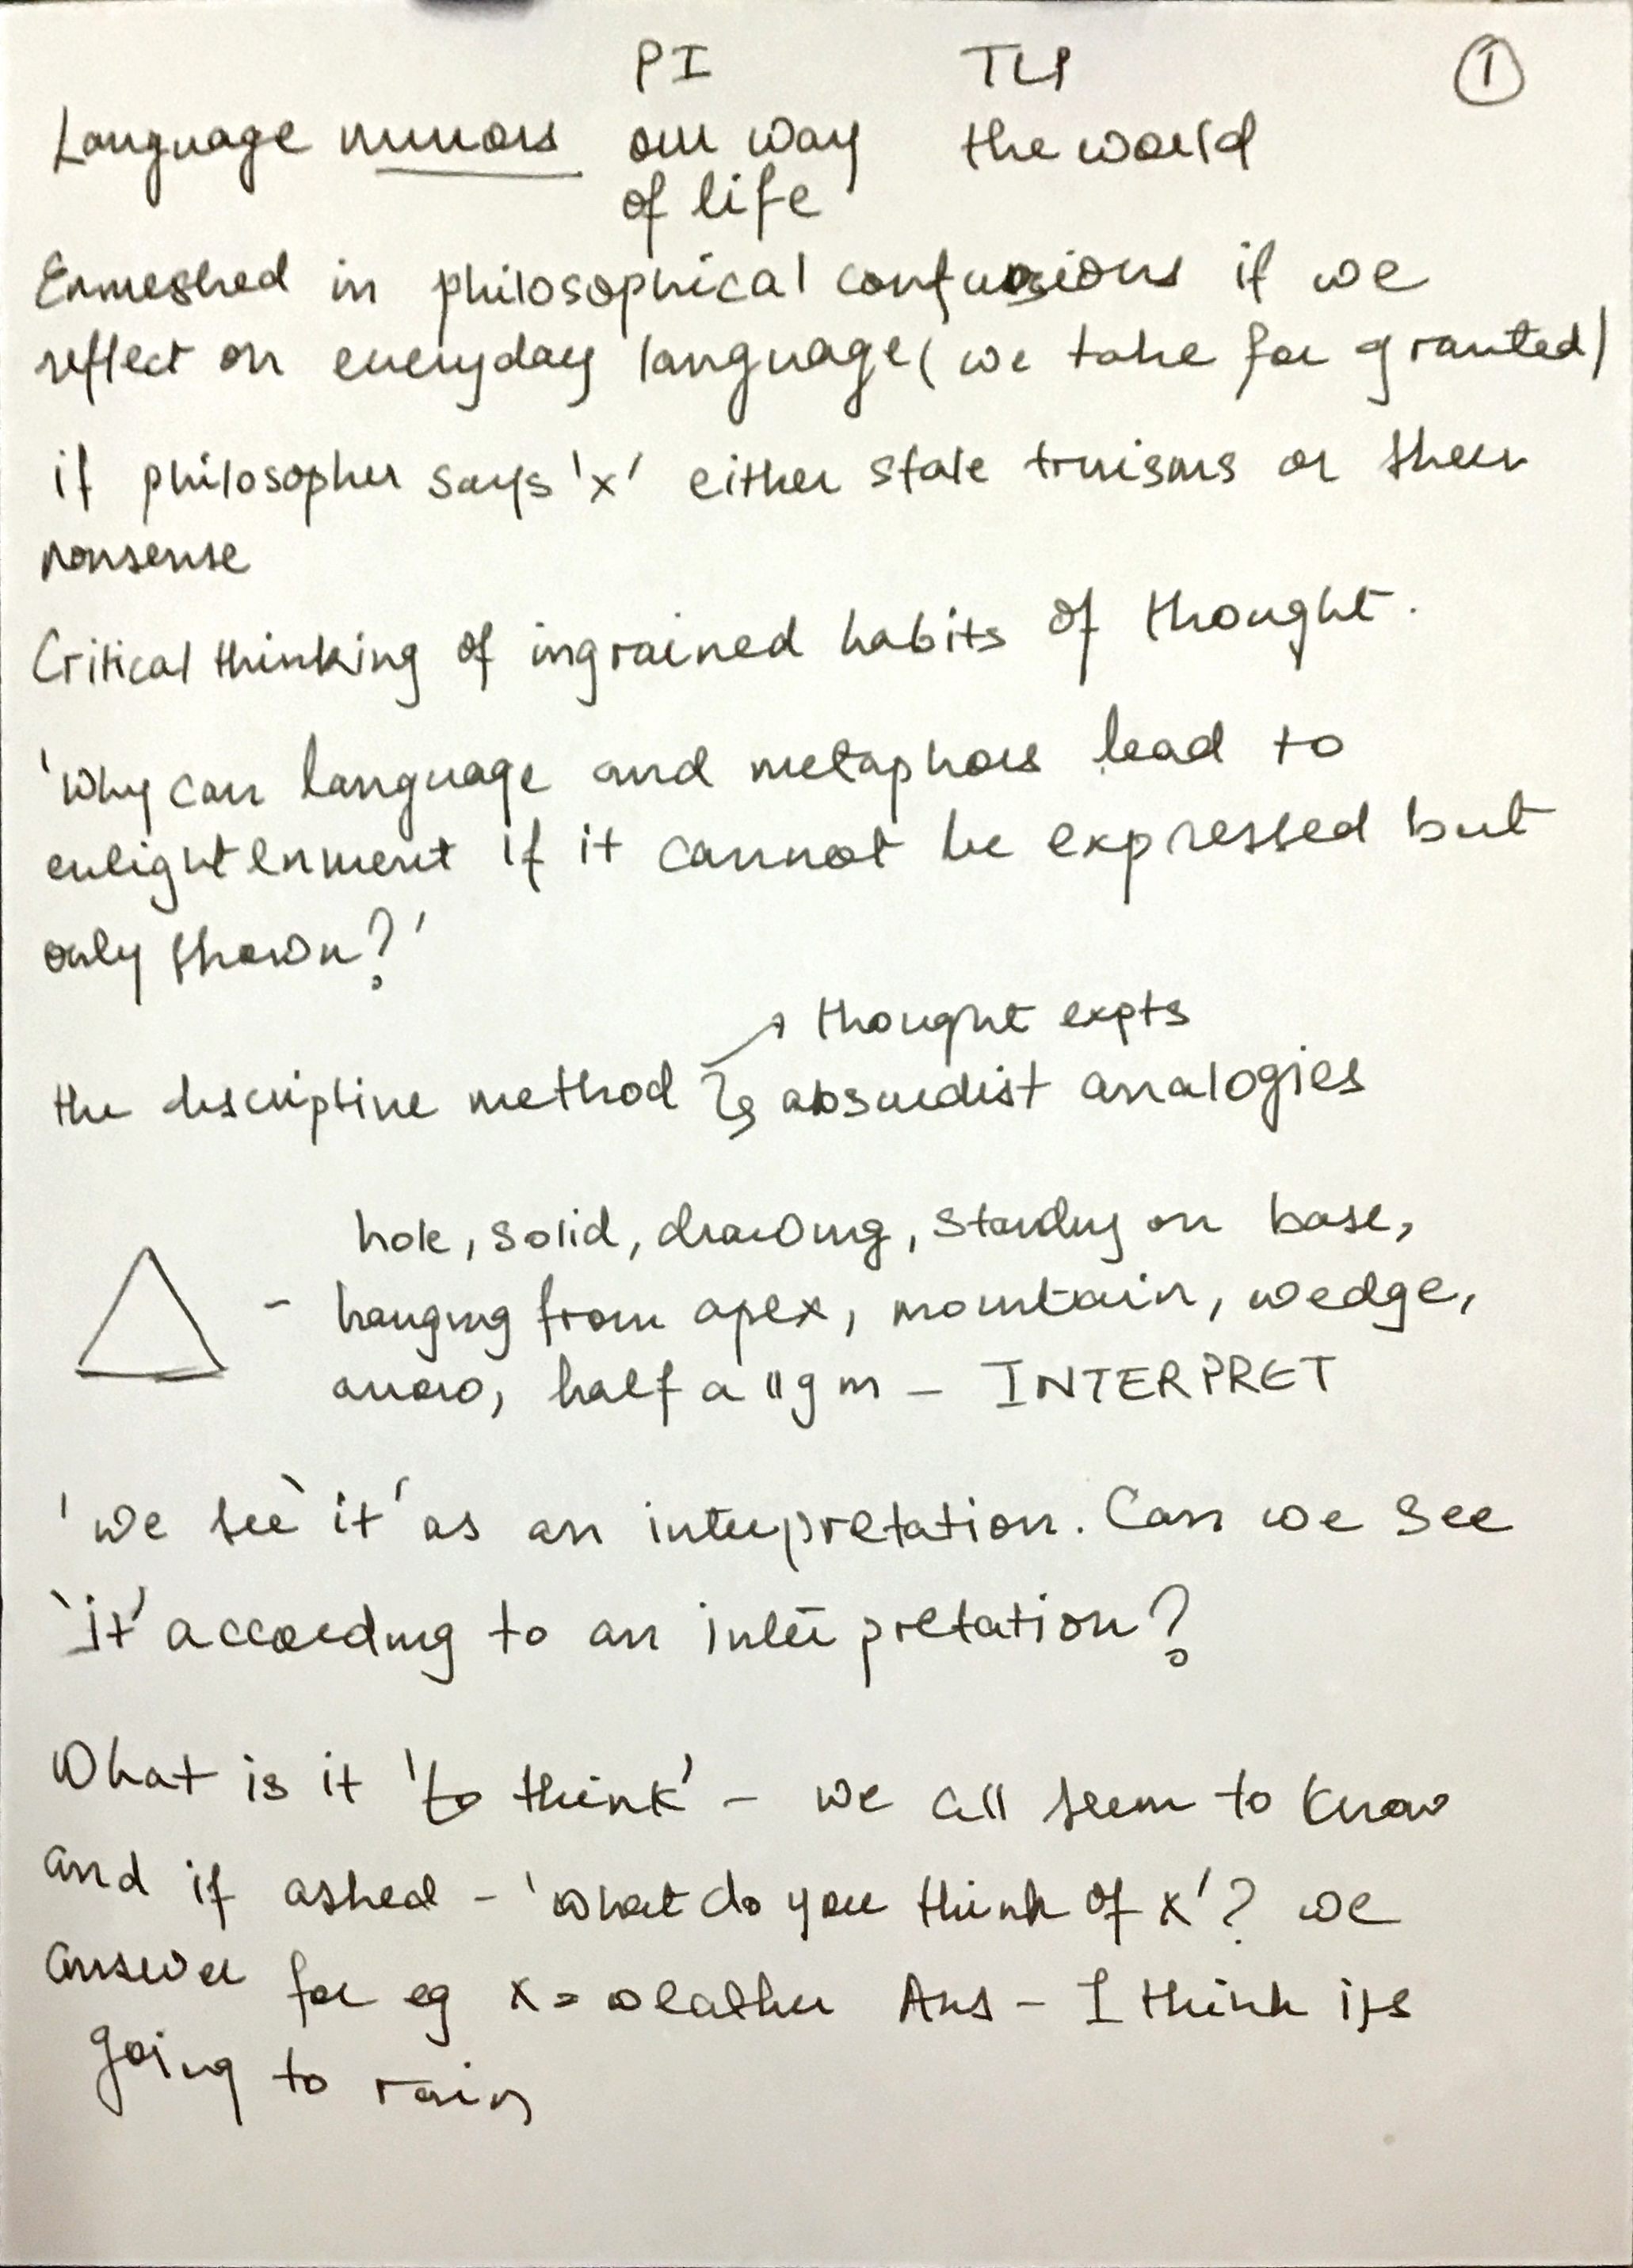 PI TLP ①
Language mirrors our way the world
of life
Enmeshed in philosophical confusions if we
reflect on everyday language (we take for granted)
if philosopher says 'x' either stale truisms or sheer
nonsense
Critical thinking of ingrained habits of thought.
'Why can language and metaphors lead to
enlightenment if it cannot be expressed but
only shown?'
thought expts
the descriptive method absurdist analogies
hole, solid, drawing, standing on base,
- hanging from apex, mountain, wedge,
arrow, half a ||gm - INTERPRET
'we see 'it' as an interpretation. Can we see
'it' according to an interpretation?
What is it 'to think' - we all seem to know
and if asked - 'what do you think of x'? we
answer for eg x = weather Ans - I think its
going to rain